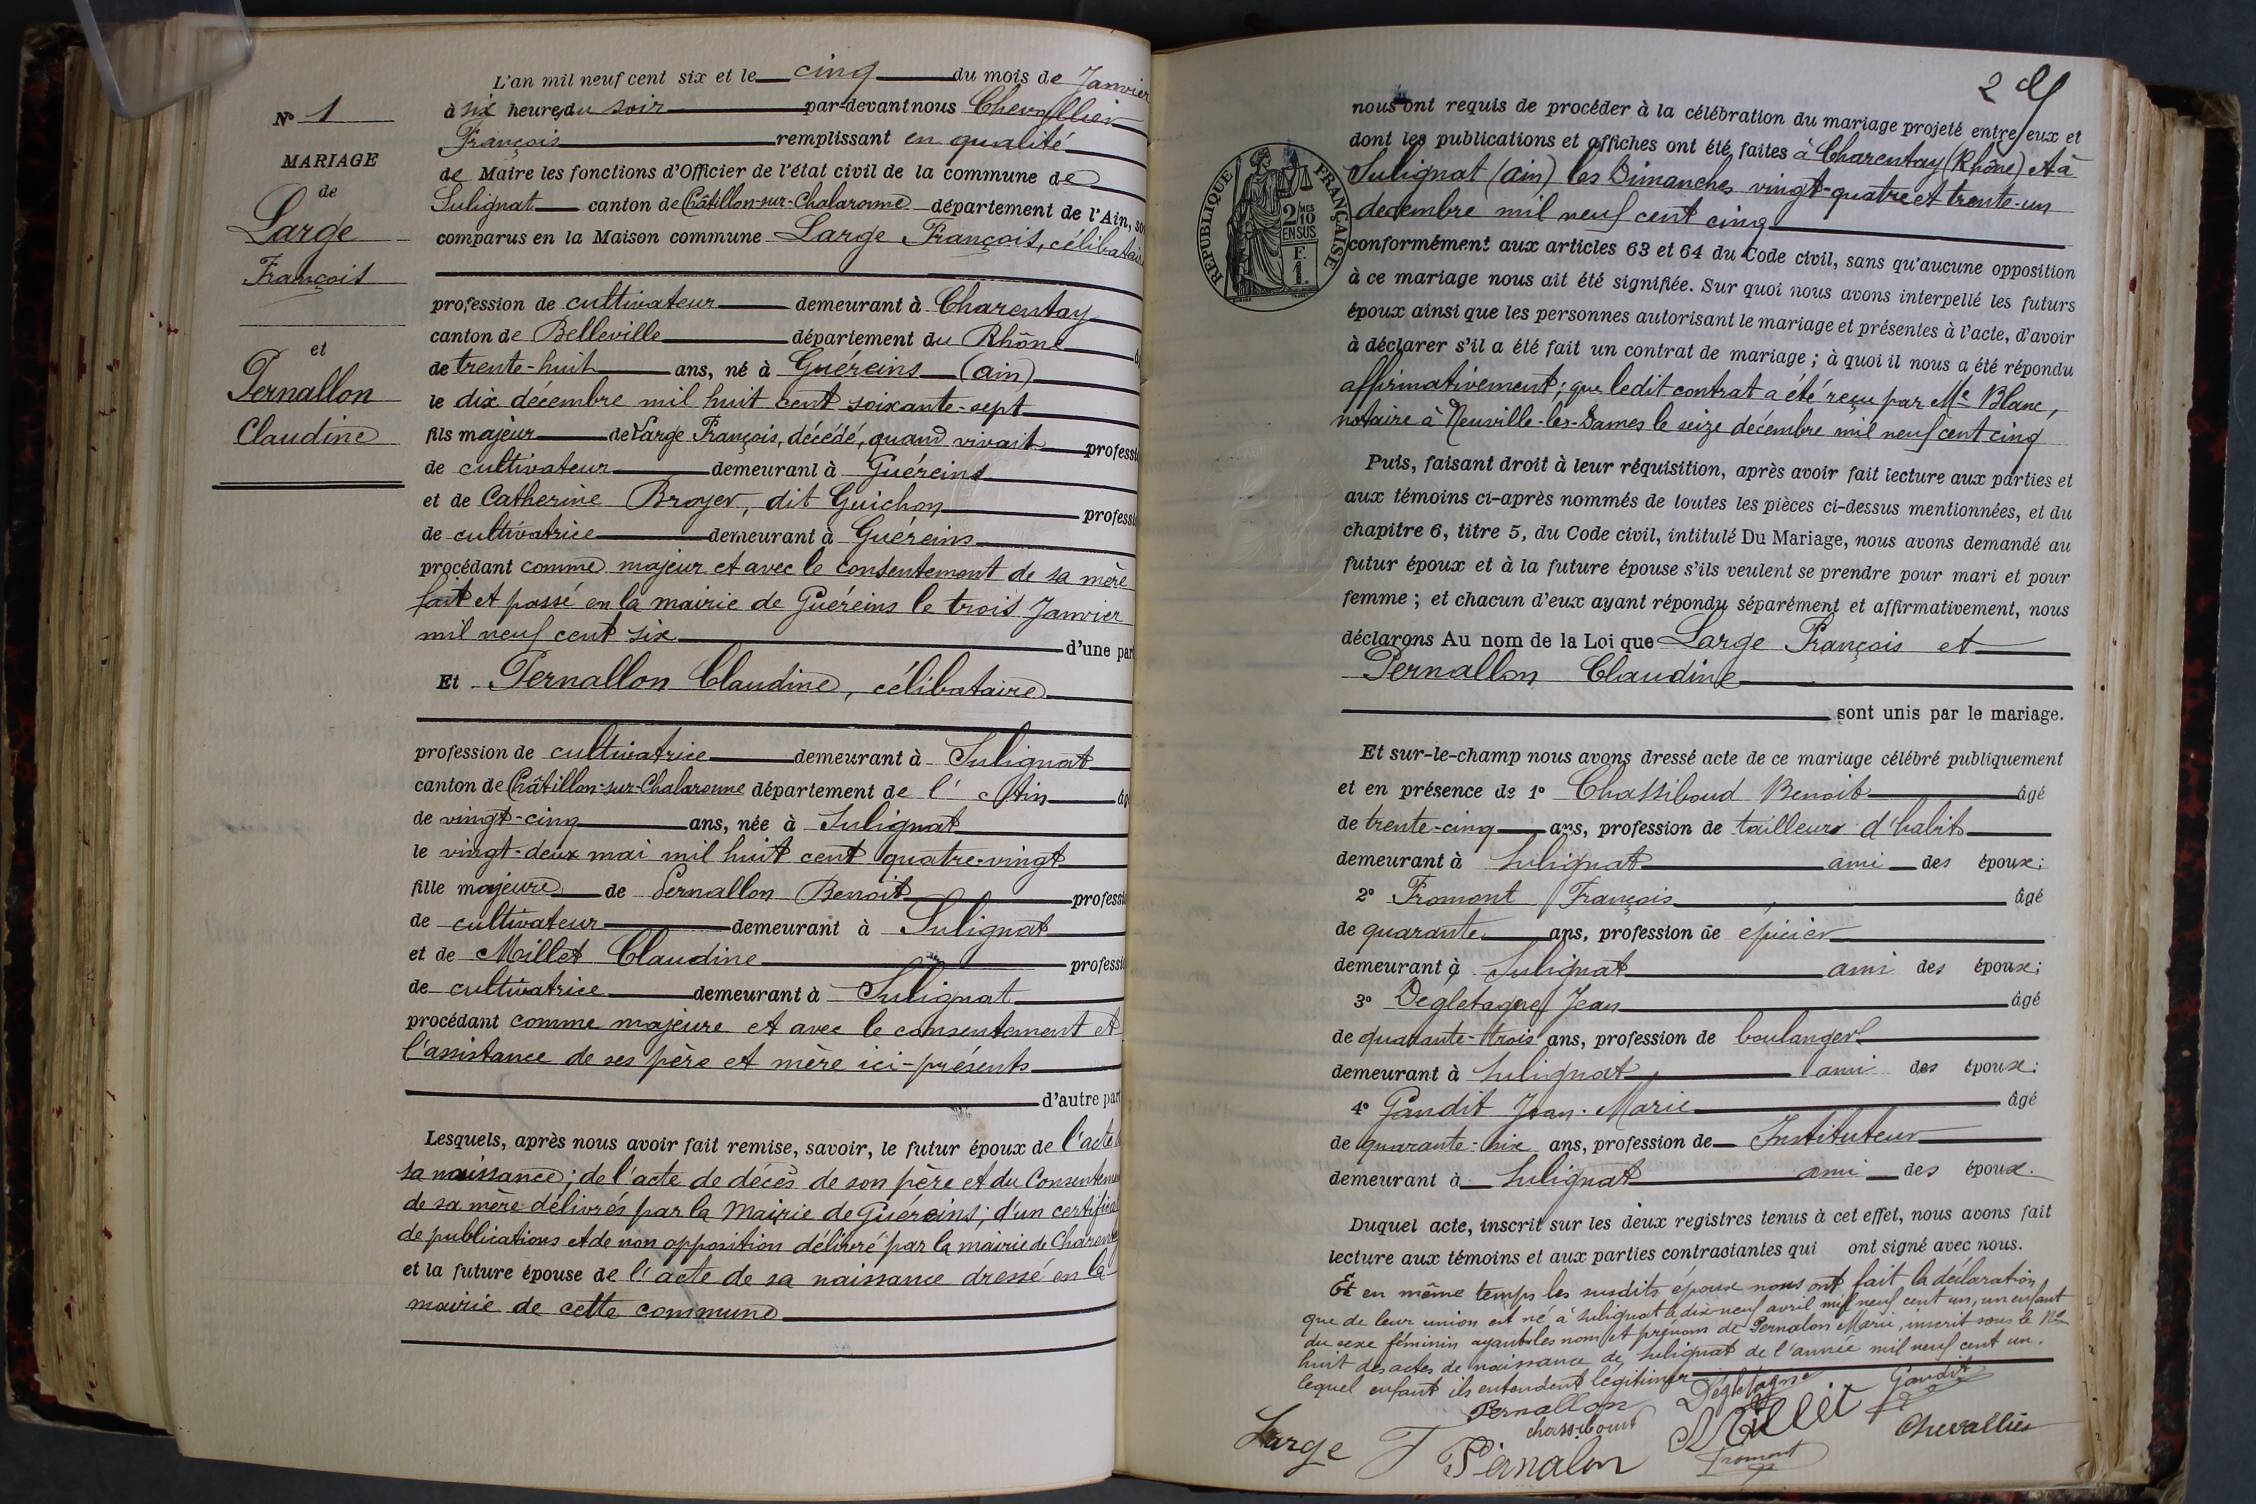 L'an mil neuf cent six et le cinq du mois de Janvier
à six heures du soir par-devant nous Chevallier
François remplissant en qualité
de Maire les fonctions d'Officier de l'état civil de la commune de
Sulignat canton de Châtillon-sur-Chalaronne département de l'Ain, so
comparus en la Maison commune Large François, célibataire
profession de cultivateur demeurant à Charentay
canton de Belleville département du Rhône
de trente-huit ans, né à Guéreins (ain)
le dix décembre mil huit cent soixante-sept
fils majeur de Large François, décédé, quand vivait professi
de cultivateur demeurant à Guéreins
et de Catherine Broyer, dit Guichon professi
de cultivatrice demeurant à Guéreins
procédant comme majeur et avec le consentement de sa mère
fait et passé en la mairie de Guéreins le trois Janvier
mil neuf cent six d'une par
Et Pernallon Claudine, célibataire
profession de cultivatrice demeurant à Sulignat
canton de Châtillon-sur-Chalaronne département de l'Ain âg
de vingt-cinq ans, née à Sulignat
le vingt-deux mai mil huit cent quatre-vingt
fille majeure de Pernallon Benoit professi
de cultivateur demeurant à Sulignat
et de Millet Claudine professi
de cultivatrice demeurant à Sulignat
procédant comme majeure et avec le consentement et
l'assistance de ses père et mère ici-présents
d'autre part
Lesquels, après nous avoir fait remise, savoir, le futur époux de l'acte de
sa naissance; de l'acte de décès de son père et du Consentemen
de sa mère délivrés par la Mairie de Guéreins; d'un certificat
de publications et de non opposition délivré par la mairie de Charentay
et la future épouse de l'acte de sa naissance dressé en la
mairie de cette commune
N° 1
MARIAGE
de
Large
François
et
Pernallon
Claudine
2
nous ont requis de procéder à la célébration du mariage projeté entre eux et
dont les publications et affiches ont été faites à Charentay (Rhône) et à
Sulignat (ain) les Dimanches vingt-quatre et trente-un
décembre mil neuf cent cinq
conformément aux articles 63 et 64 du Code civil, sans qu'aucune opposition
à ce mariage nous ait été signifiée. Sur quoi nous avons interpellé les futurs
époux ainsi que les personnes autorisant le mariage et présentes à l'acte, d'avoir
à déclarer s'il a été fait un contrat de mariage; à quoi il nous a été répondu
affirmativement; que ledit contrat a été reçu par Me Blanc,
notaire à Neuville-les-Dames le seize décembre mil neuf cent cinq
Puis, faisant droit à leur réquisition, après avoir fait lecture aux parties et
aux témoins ci-après nommés de toutes les pièces ci-dessus mentionnées, et du
chapitre 6, titre 5, du Code civil, intitulé Du Mariage, nous avons demandé au
futur époux et à la future épouse s'ils veulent se prendre pour mari et pour
femme; et chacun d'eux ayant répondu séparément et affirmativement, nous
déclarons Au nom de la Loi que Large François et
Pernallon Claudine
sont unis par le mariage.
Et sur-le-champ nous avons dressé acte de ce mariage célébré publiquement
et en présence de 1° Chassiboud Benoit âgé
de trente-cinq ans, profession de tailleur d'habits
demeurant à Sulignat ami des époux;
2° Fromont François âgé
de quarante ans, profession de épicier
demeurant à Sulignat ami des époux;
3° Degletagne Jean âgé
de quarante-trois ans, profession de boulanger
demeurant à Sulignat ami des époux;
4° Gandit Jean-Marie âgé
de quarante-six ans, profession de Instituteur
demeurant à Sulignat ami des époux.
Duquel acte, inscrit sur les deux registres tenus à cet effet, nous avons fait
lecture aux témoins et aux parties contractantes qui ont signé avec nous.
Et en même temps les susdits époux nous ont fait la déclaration
que de leur union est né à Sulignat le dix-neuf avril mil neuf cent un, un enfant
du sexe féminin ayant les nom et prénom de Pernalon Marie, inscrit sous le No
huit des actes de naissance de Sulignat de l'année mil neuf cent un.
lequel enfant ils entendent légitimer
Degletagne Gandit
Pernallon Millet
chassiboud Chevallier
Large F Pernalon Fromont
RÉPUBLIQUE FRANÇAISE
2/MES
10
EN SUS
F.
1.